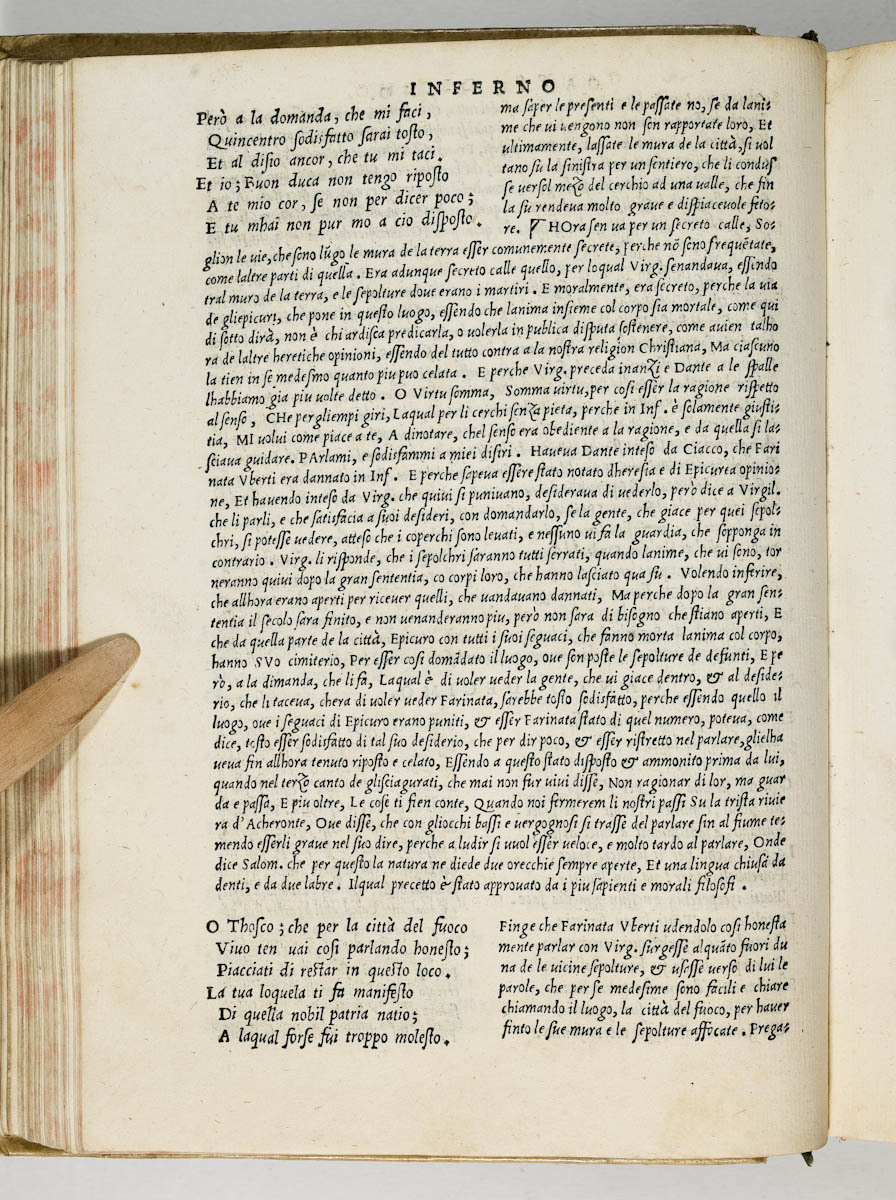 INFERNO
Però a la domanda, che mi faci,
Quincentro sodisfatto sarai tosto,
Et al disio ancor, che tu mi taci.
Et io; Buon duca non tengo riposto
A te mio cor, se non per dicer poco;
E tu mhai non pur mo a cio disposto.
ma saper le presenti e le passate no, se da lani-
me che ui uengono non son rapportate loro, Et
ultimamente, lassate le mura de la città, si uol
tano su la sinistra per un sentiero, che li condus
se uersol mezo del cerchio ad una ualle, che fin
la su rendeua molto graue e dispiaceuole feto-
re. HOra sen ua per un secreto calle, So-
glion le uie, che sono lũgo le mura de la terra esser comunemente secrete, perche nõ seno frequẽtate,
come laltre parti di quella. Era adunque secreto calle quello, per loqual Virg. senandaua, essendo
tral muro de la terra, e le sepolture doue erano i martiri. E moralmente, era secreto, perche la uia
de gliepicuri, che pone in questo luogo, essendo che lanima insieme col corpo sia mortale, come qui
di sotto dirà, non è chi ardisca predicarla, o uolerla in publica disputa sostenere, come auien talho
ra de laltre heretiche opinioni, essendo del tutto contra a la nostra religion Christiana, Ma ciascuno
la tien in se medesmo quanto piu puo celata. E perche Virg. preceda inanzi e Dante a le spalle
lhabbiamo gia piu uolte detto. O Virtu somma, Somma uirtu, per cosi esser la ragione rispetto
al senso, CHe per gliempi giri, Laqual per li cerchi senza pieta, perche in Inf. è solamente giusti-
tia, MI uolui come piace a te, A dinotare, chel senso era obediente a la ragione, e da quella si la-
sciaua guidare. PArlami, e sodisfammi a miei disiri. Haueua Dante inteso da Ciacco, che Fari
nata Vberti era dannato in Inf. E perche sapeua essere stato notato dheresia e di Epicurea opinio-
ne, Et hauendo inteso da Virg. che quiui si puniuano, desideraua di uederlo, però dice a Virgil.
che li parli, e che satisfacia a suoi desideri, con domandarlo, se la gente, che giace per quei sepol-
chri, si potesse uedere, atteso che i coperchi sono leuati, e nessuno ui fa la guardia, che sopponga in
contrario. Virg. li risponde, che i sepolchri saranno tutti serrati, quando lanime, che ui seno, tor
neranno quiui dopo la gran sententia, co corpi loro, che hanno lasciato qua su. Volendo inferire,
che allhora erano aperti per riceuer quelli, che uandauano dannati, Ma perche dopo la gran sen-
tentia il secolo sara finito, e non uenanderanno piu, però non sara di bisogno che stiano aperti, E
che da quella parte de la città, Epicuro con tutti i suoi seguaci, che fanno morta lanima col corpo,
hanno SVo cimiterio, Per esser cosi domãdato il luogo, oue son poste le sepolture de defunti, E pe
rò, a la dimanda, che li fa, Laqual è di uoler ueder la gente, che ui giace dentro, & al deside-
rio, che li taceua, chera di uoler ueder Farinata, sarebbe tosto sodisfatto, perche essendo quello il
luogo, oue i seguaci di Epicuro erano puniti, & esser Farinata stato di quel numero, poteua, come
dice, tosto esser sodisfatto di tal suo desiderio, che per dir poco, & esser ristretto nel parlare, glielha
ueua fin allhora tenuto riposto e celato, Essendo a questo stato disposto & ammonito prima da lui,
quando nel terzo canto de glisciagurati, che mai non fur uiui disse, Non ragionar di lor, ma guar
da e passa, E piu oltre, Le cose ti fien conte, Quando noi fermerem li nostri passi Su la trista riuie
ra d'Acheronte, Oue disse, che con gliocchi bassi e uergognosi si trasse del parlare fin al fiume te-
mendo esserli graue nel suo dire, perche a ludir si uuol esser ueloce, e molto tardo al parlare, Onde
dice Salom. che per questo la natura ne diede due orecchie sempre aperte, Et una lingua chiusa da
denti, e da due labre. Ilqual precetto è stato approuato da i piu sapienti e morali filosofi.
O Thosco; che per la città del fuoco
Viuo ten uai cosi parlando honesto;
Piacciati di restar in questo loco.
La tua loquela ti fa manifesto
Di quella nobil patria natio;
A laqual forse fui troppo molesto.
Finge che Farinata Vberti udendolo cosi honesta
mente parlar con Virg. surgesse alquãto fuori du
na de le uicine sepolture, & usesse uerso di lui le
parole, che per se medesime sono facili e chiare
chiamando il luogo, la città del fuoco, per hauer
finto le sue mura e le sepolture affocate. Prega-